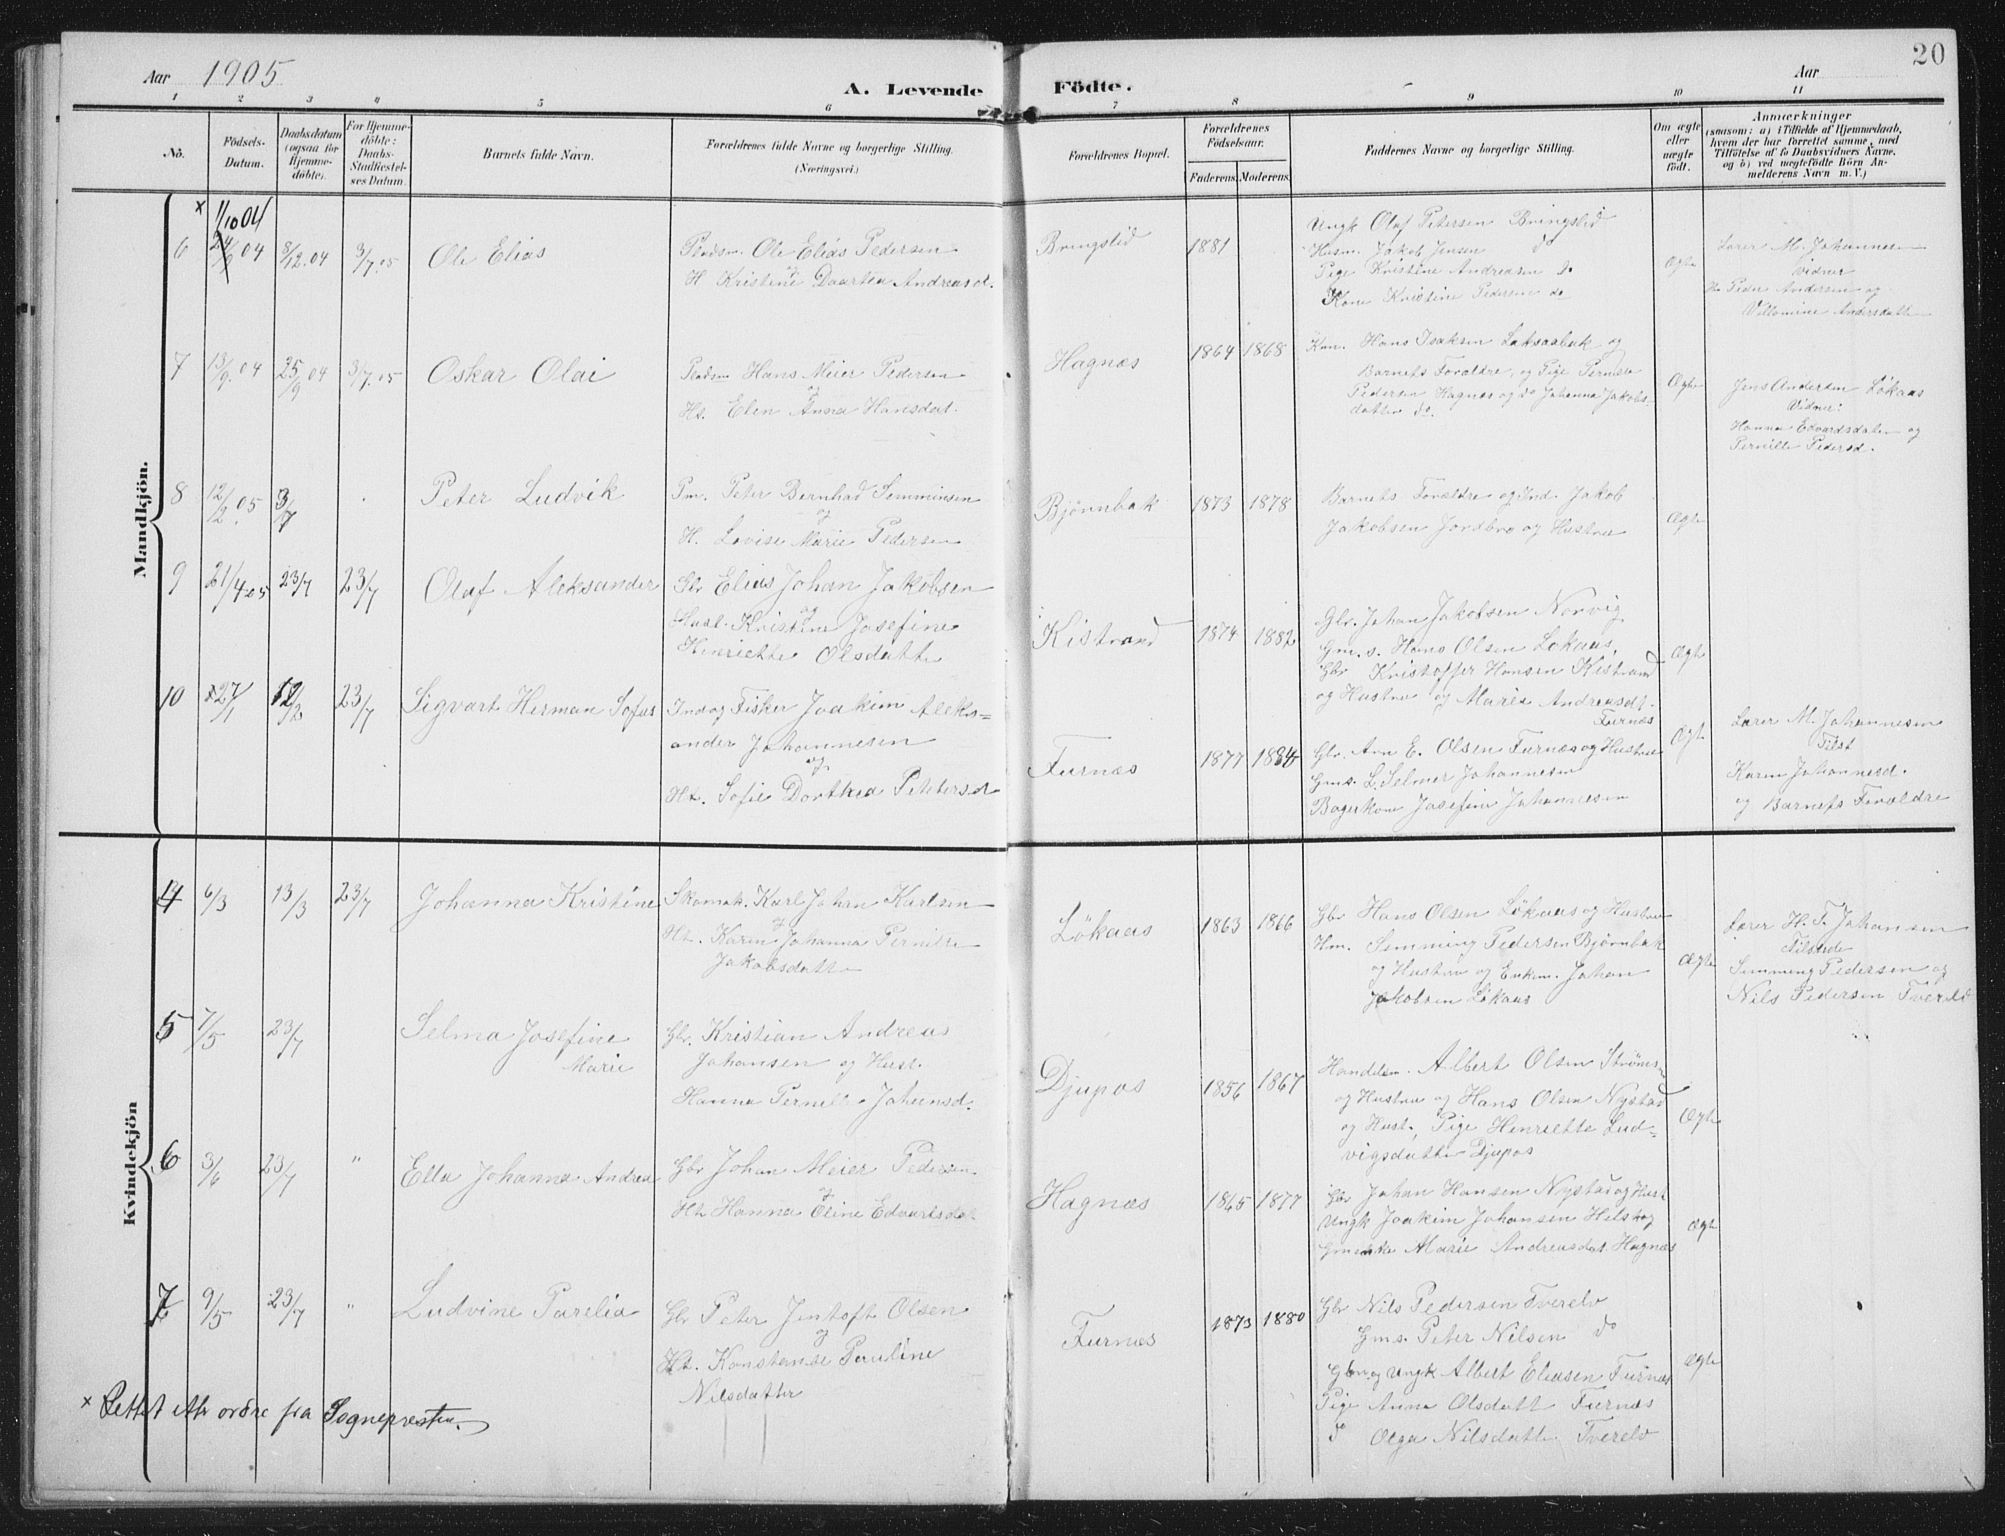 Aar 1905
A. Levende Födte.
Aar
20
1 2 3 4 5 6 7 8 9 10 11
No.
Födsels-
Datum.
Daabsdatum
(ogsaa for
Hjemme-
döbte).
For Hjemme-
döbte:
Daabs-
Stadfæstel-
ses Datum.
Barnets fulde Navn.
Forældrenes fulde Navne og borgerlige Stilling.
(Næringsvei.)
Forældrenes Bopæl.
Forældrenes
Födselsaar.
Faderens. Moderens.
Faddernes Navne og borgerlige Stilling.
Om ægte
eller
uægte
født.
Anmærkninger
(saasom: a) i Tilfælde af Hjemmedaab,
hvem der har forrettet samme, med
Tilföielse af to Daabsvidners Navne,
og b) ved uægtefödte Börn An-
melderens Navn m. V.)
Mandkjön.
x
1/10 04
6 24/9 04 8/12.04 3/7.05 Ole Elias
Pladsm. Ole Elias Pedersen
og
H. Kristine Daartea Andreasd.
Bringslid 1881
Ungk Olaf Petersen Bringslid
Husm. Jakob Jensen do
Pige Kristine Andreasen do
Kone Kristine Pedersen do
Ægte
Lærer M. Johannesen
Vidner
Peder Andersen og
Villomine Andersdatter
7 13/9.04 25/9 04 3/7.05 Oskar Olai
Pladsm Hans Meier Pedersen
og
Ht. Elen Anna Hansdat.
Hagnæs 1864 1868
Hans Isaksen Laksaabak og
Barnets Forældre, og Pige Pernille
Pedersen Hagnæs og do Johanna Jakobs-
datter do.
Ægte
Jens Andersen Løkaas
Vidner:
Hanna Edvardsdatter og
Pernille Pedersd.
8 12/2.05 3/7 Peter Ludvik
Pm. Peter Bernhad Semminsen
og
H. Lovise Marie Pedersen
Bjønnbak 1873 1878
Barnets Forældre og Ind. Jakob
Jakobsen Jordbro og Hustru
Ægte
9 21/4.05 23/7 23/7 Olaf Aleksander
Gbr Elias Johan Jakobsen
og
Hust. Kristine Josefine
Henriette Olsdatter
Kistrand 1874 1882
Gbr. Johan Jakobsen Norvig
Gm. s. Hans Olsen Lokaas,
Gbr Kristoffer Hansen Kistrand
og Hustru og Marie Andreasdt.
Furnæs
Ægte
10 27/1 12/2 23/7 Sigvart Herman Sofus
Ind og Fisker Joakim Aleks=
ander Johannesen
og
Ht. Sofie Dorthea Pettersd
Furnæs 1877 1884
Gbr. Arn E. Olsen Furnæs og Hustru
Gms. L. Selmer Johannesen
Bagerkone Josefine Johannesen
Ægte
Lærer M. Johannesen
Tilst
Karen Johannesd.
og Barnets Forældre
Kvindekjön
4 6/3 13/3 23/7 Johanna Kristine
Skomak. Karl Johan Karlsen
og
Ht. Karen Johanna Pernille
Jakobsdatter
Løkaas 1863 1866
Gbr Hans Olsen Løkaas og Hustru
Hm. Semming Pedersen Bjønnbak
og Hustru og Enkm. Johan
Jakobsen Løkaas
Ægte
Lærer H. F. Johansen
Tilstede
Semming Pedersen og
Nils Pedersen Tverelv
5 7/5 23/7 Selma Josefine
Marie
Gbr. Kristian Andreas
Johansen og Hust.
Hanna Pernille Johansd.
Djupos 1856 1867
Handelsm. Albert Olsen Strømsn
og Hustru og Hans Olsen Nystad
og Hust., Pige Henriette Lud=
vigsdatter Djupos
Ægte
6 3/6 23/7 " Ella Johanna Andrea
Gbr Johan Meier Pedersen
og
Ht Hanna Eline Edvartsdat.
Hagnæs 1865 1877
Gbr Johan Hansen Nystad og Hust
Ungk Joakim Johansen Hilskog
Marie Andreasdat. Hagnæs
Ægte
7 9/5 23/7 " Ludvine Parelia
Gbr Peter Jentoft Olsen
og
Ht. Konstanse Pauline
Nilsdatter
Furnæs 1873 1880
Gbr Nils Pedersen Tverelv
Gms. Peter Nilsen do
Gbr. og Ungk Albert Eliasen Furnæs
Pige Anna Olsdatt Furnæs
do Olga Nilsdatter Tverelv
Ægte
x Rettet efter ordre fra Sognepresten.